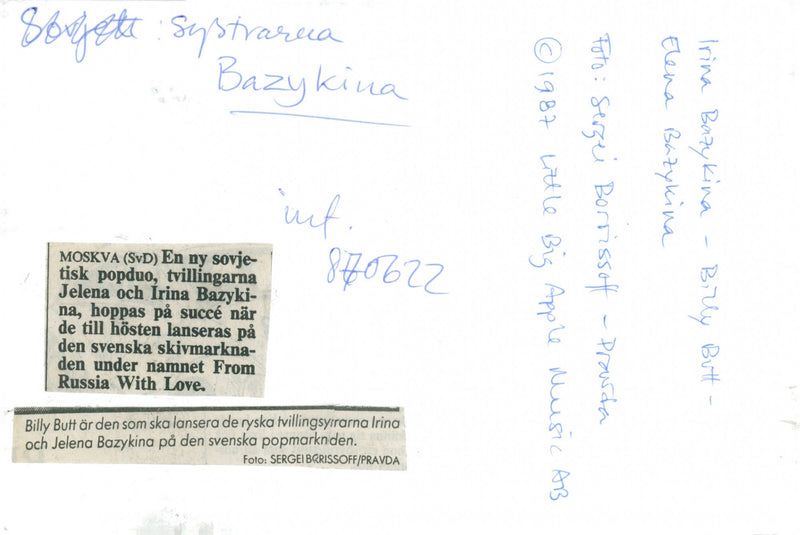 : Systrarna
Bazykina
inf.
870622
MOSKVA (SvD) En ny sovje-
tisk popduo, tvillingarna
Jelena och Irina Bazyki-
na, hoppas på succé när
de till hösten lanseras på
den svenska skivmarkna-
den under namnet From
Russia With Love.
Billy Butt är den som ska lansera de ryska tvillingsyrrarna Irina
och Jelena Bazykina på den svenska popmarknden.
Foto: SERGEI BORISSOFF/PRAVDA
Irina Bazykina - Billy Butt -
Elena Bazykina
Foto: Sergei Borrissoff - Pravda
©1987 Little Big Apple Music AB